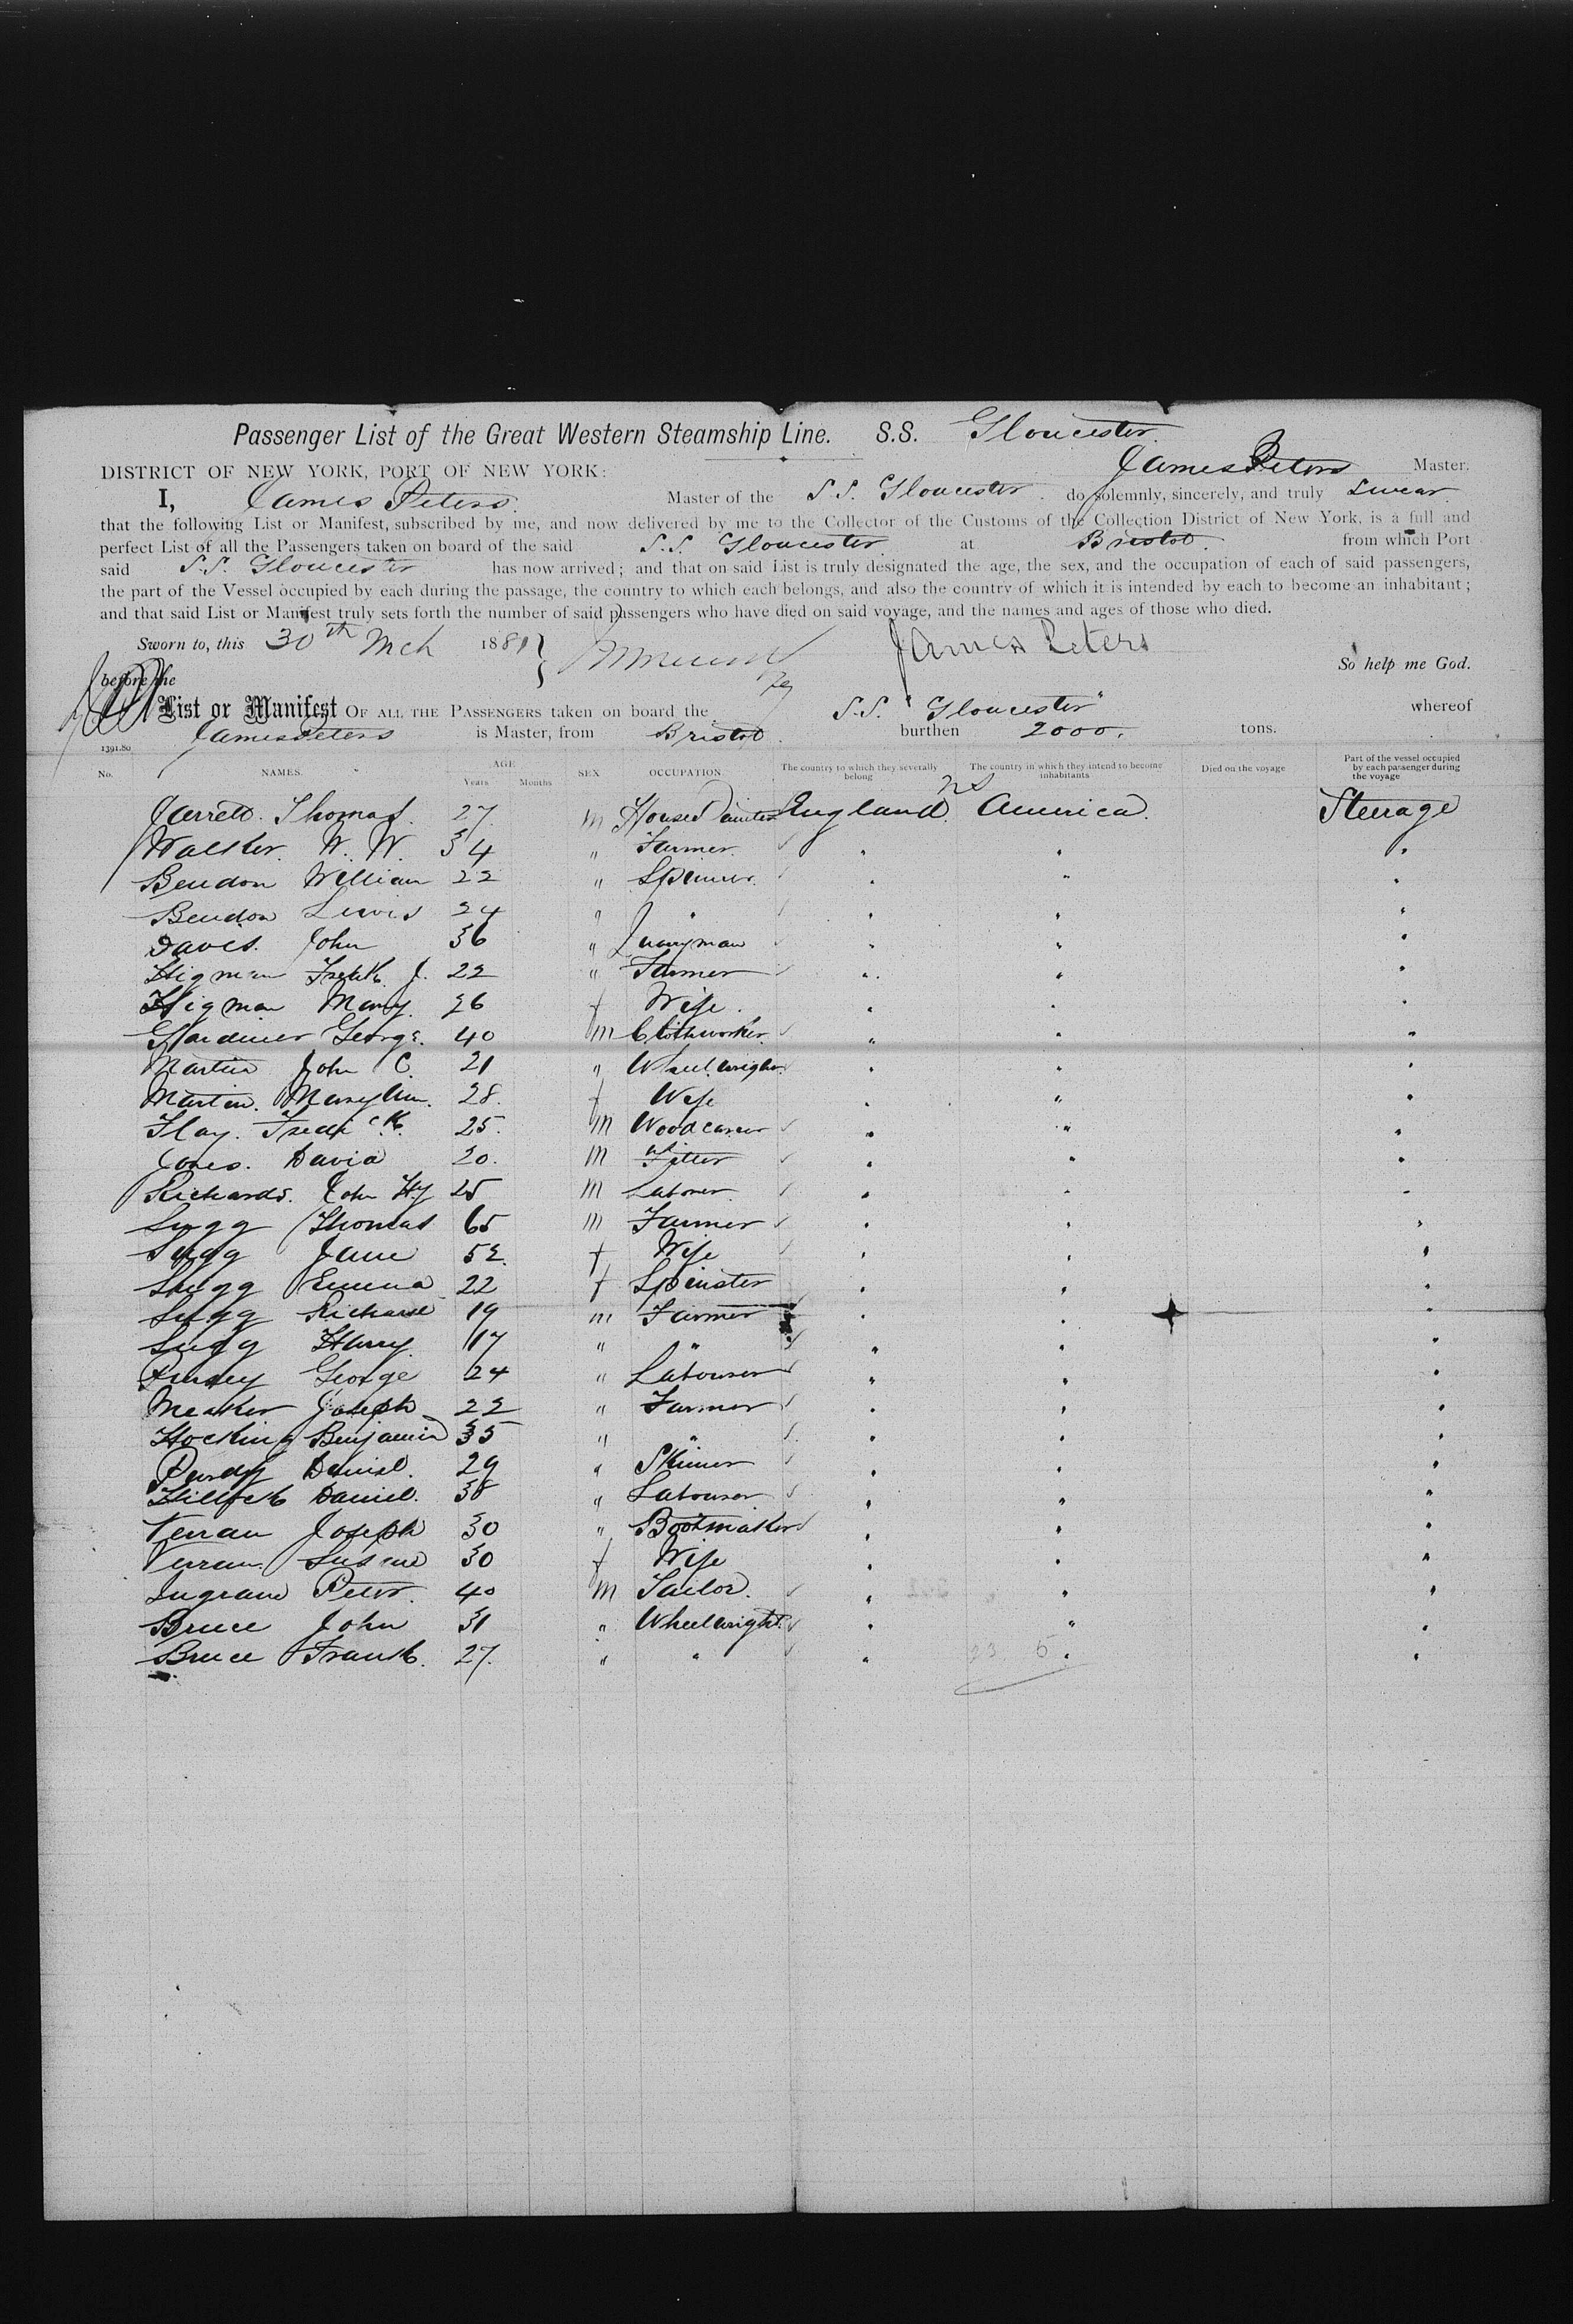 Passenger List of the Great Western Steamship Line. S.S. Gloucester.
James Peters Master.
DISTRICT OF NEW YORK, PORT OF NEW YORK:
I, James Peters. Master of the S.S. Gloucester. do solemnly, sincerely, and truly swear
that the following List or Manifest, subscribed by me, and now delivered by me to the Collector of the Customs of the Collection District of New York, is a full and
perfect List of all the Passengers taken on board of the said S.S. Gloucester at Bristol. from which Port
said S.S. Gloucester has now arrived; and that on said List is truly designated the age, the sex, and the occupation of each of said passengers,
the part of the Vessel occupied by each during the passage, the country to which each belongs, and also the country of which it is intended by each to become an inhabitant;
and that said List or Manifest truly sets forth the number of said passengers who have died on said voyage, and the names and ages of those who died.
Sworn to, this 30th Mch 1881 James Peters
So help me God.
before me
List or Manifest OF ALL THE PASSENGERS taken on board the S.S. "Gloucester" whereof
James Peters is Master, from Bristol. burthen 2000. tons.
1391.80
No. NAMES. AGE Years Months SEX OCCUPATION. The country to which they severally belong The country in which they intend to become inhabitants Died on the voyage Part of the vessel occupied by each passenger during the voyage
Jarrett. Thomas. 27. m House Painter England. America. Steerage
Walker. W. W. 34 " Farmer. " " "
Bendon William 22 " Spinner. " " "
Bendon Lewis 24 " " " " "
Davis. John 36 " Quarryman " " "
Higman Fredk. J. 22 " Farmer " " "
Higman Mary. 26 f Wife. " " "
Gardiner George. 40 m Clothworker. " " "
Martin John C. 21 " Wheelwright " " "
Martin. Mary Ann. 28. f Wife " " "
Flay. Fredk. 25. m Woodcarver " " "
Jones. David 20. m Fitter " " "
Richards. John Hy 25 m Laborer. " " "
Sugg Thomas 65 m Farmer " " "
Sugg Jane 52. f Wife " " "
Sugg Emma 22 f Spinster " " "
Sugg Richard 19 m Farmer " " "
Sugg Harry. 17 " " " " "
George 24 " Labourer " " "
Meaker Joseph 22 " Farmer " " "
Hocking Benjamin 35 " " " " "
Purdy Daniel. 29 " Skinner " " "
Daniel. 38 " Labourer " " "
Verran Joseph 30 " Bootmaker " " "
Verran. Susan 30 f Wife " " "
Ingram Peter. 40 m Tailor. " " "
Bruce John 31 " Wheelwright. " " "
Bruce Frank. 27. " " " " "
23 5